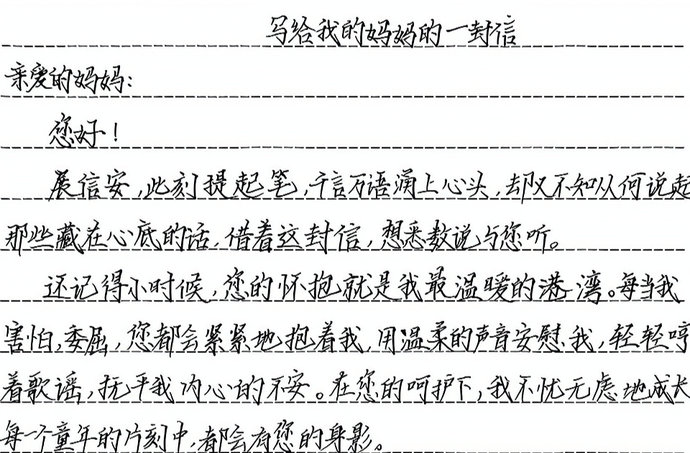 写给我的妈妈的一封信
亲爱的妈妈:
您好!
展信安,此刻提起笔,千言万语涌上心头,却又不知从何说起
那些藏在心底的话,借着这封信,想悉数说与您听。
还记得小时候,您的怀抱就是我最温暖的港湾。每当我
害怕,委屈,您都会紧紧地抱着我,用温柔的声音安慰我,轻轻哼
着歌谣,抚平我内心的不安。在您的呵护下,我不忧无虑地成长
每一个童年的片刻中,都会有您的身影。